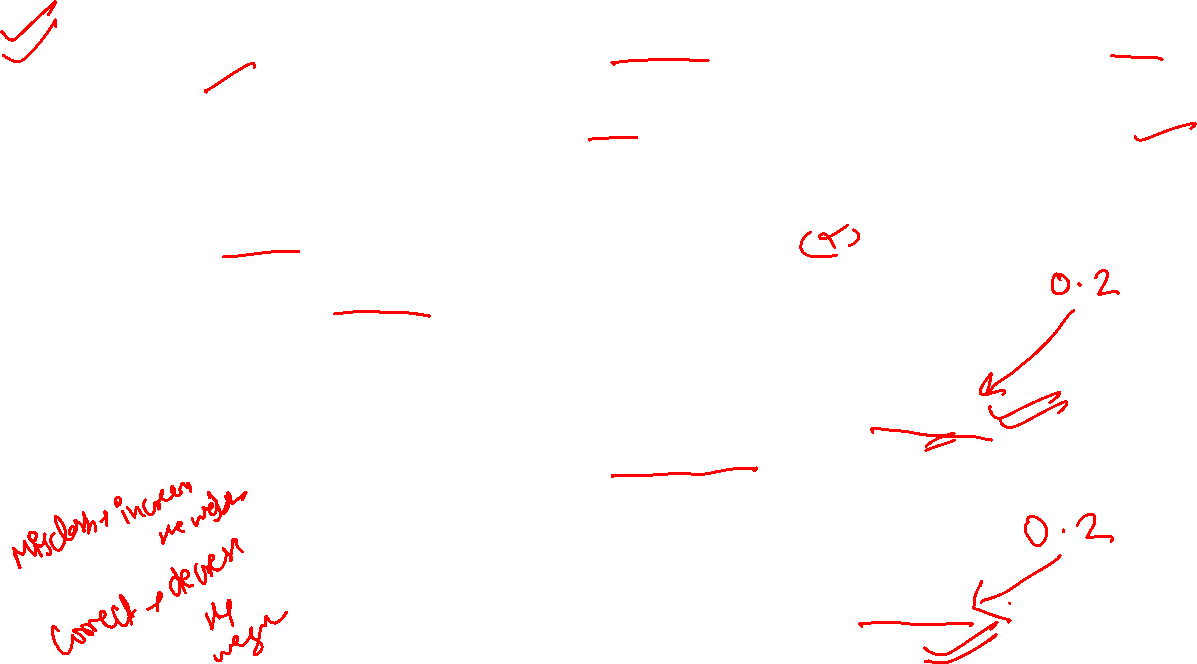 (α)
0.2
0.2
Misclass → increase
the weight
correct → decrease
the
weight